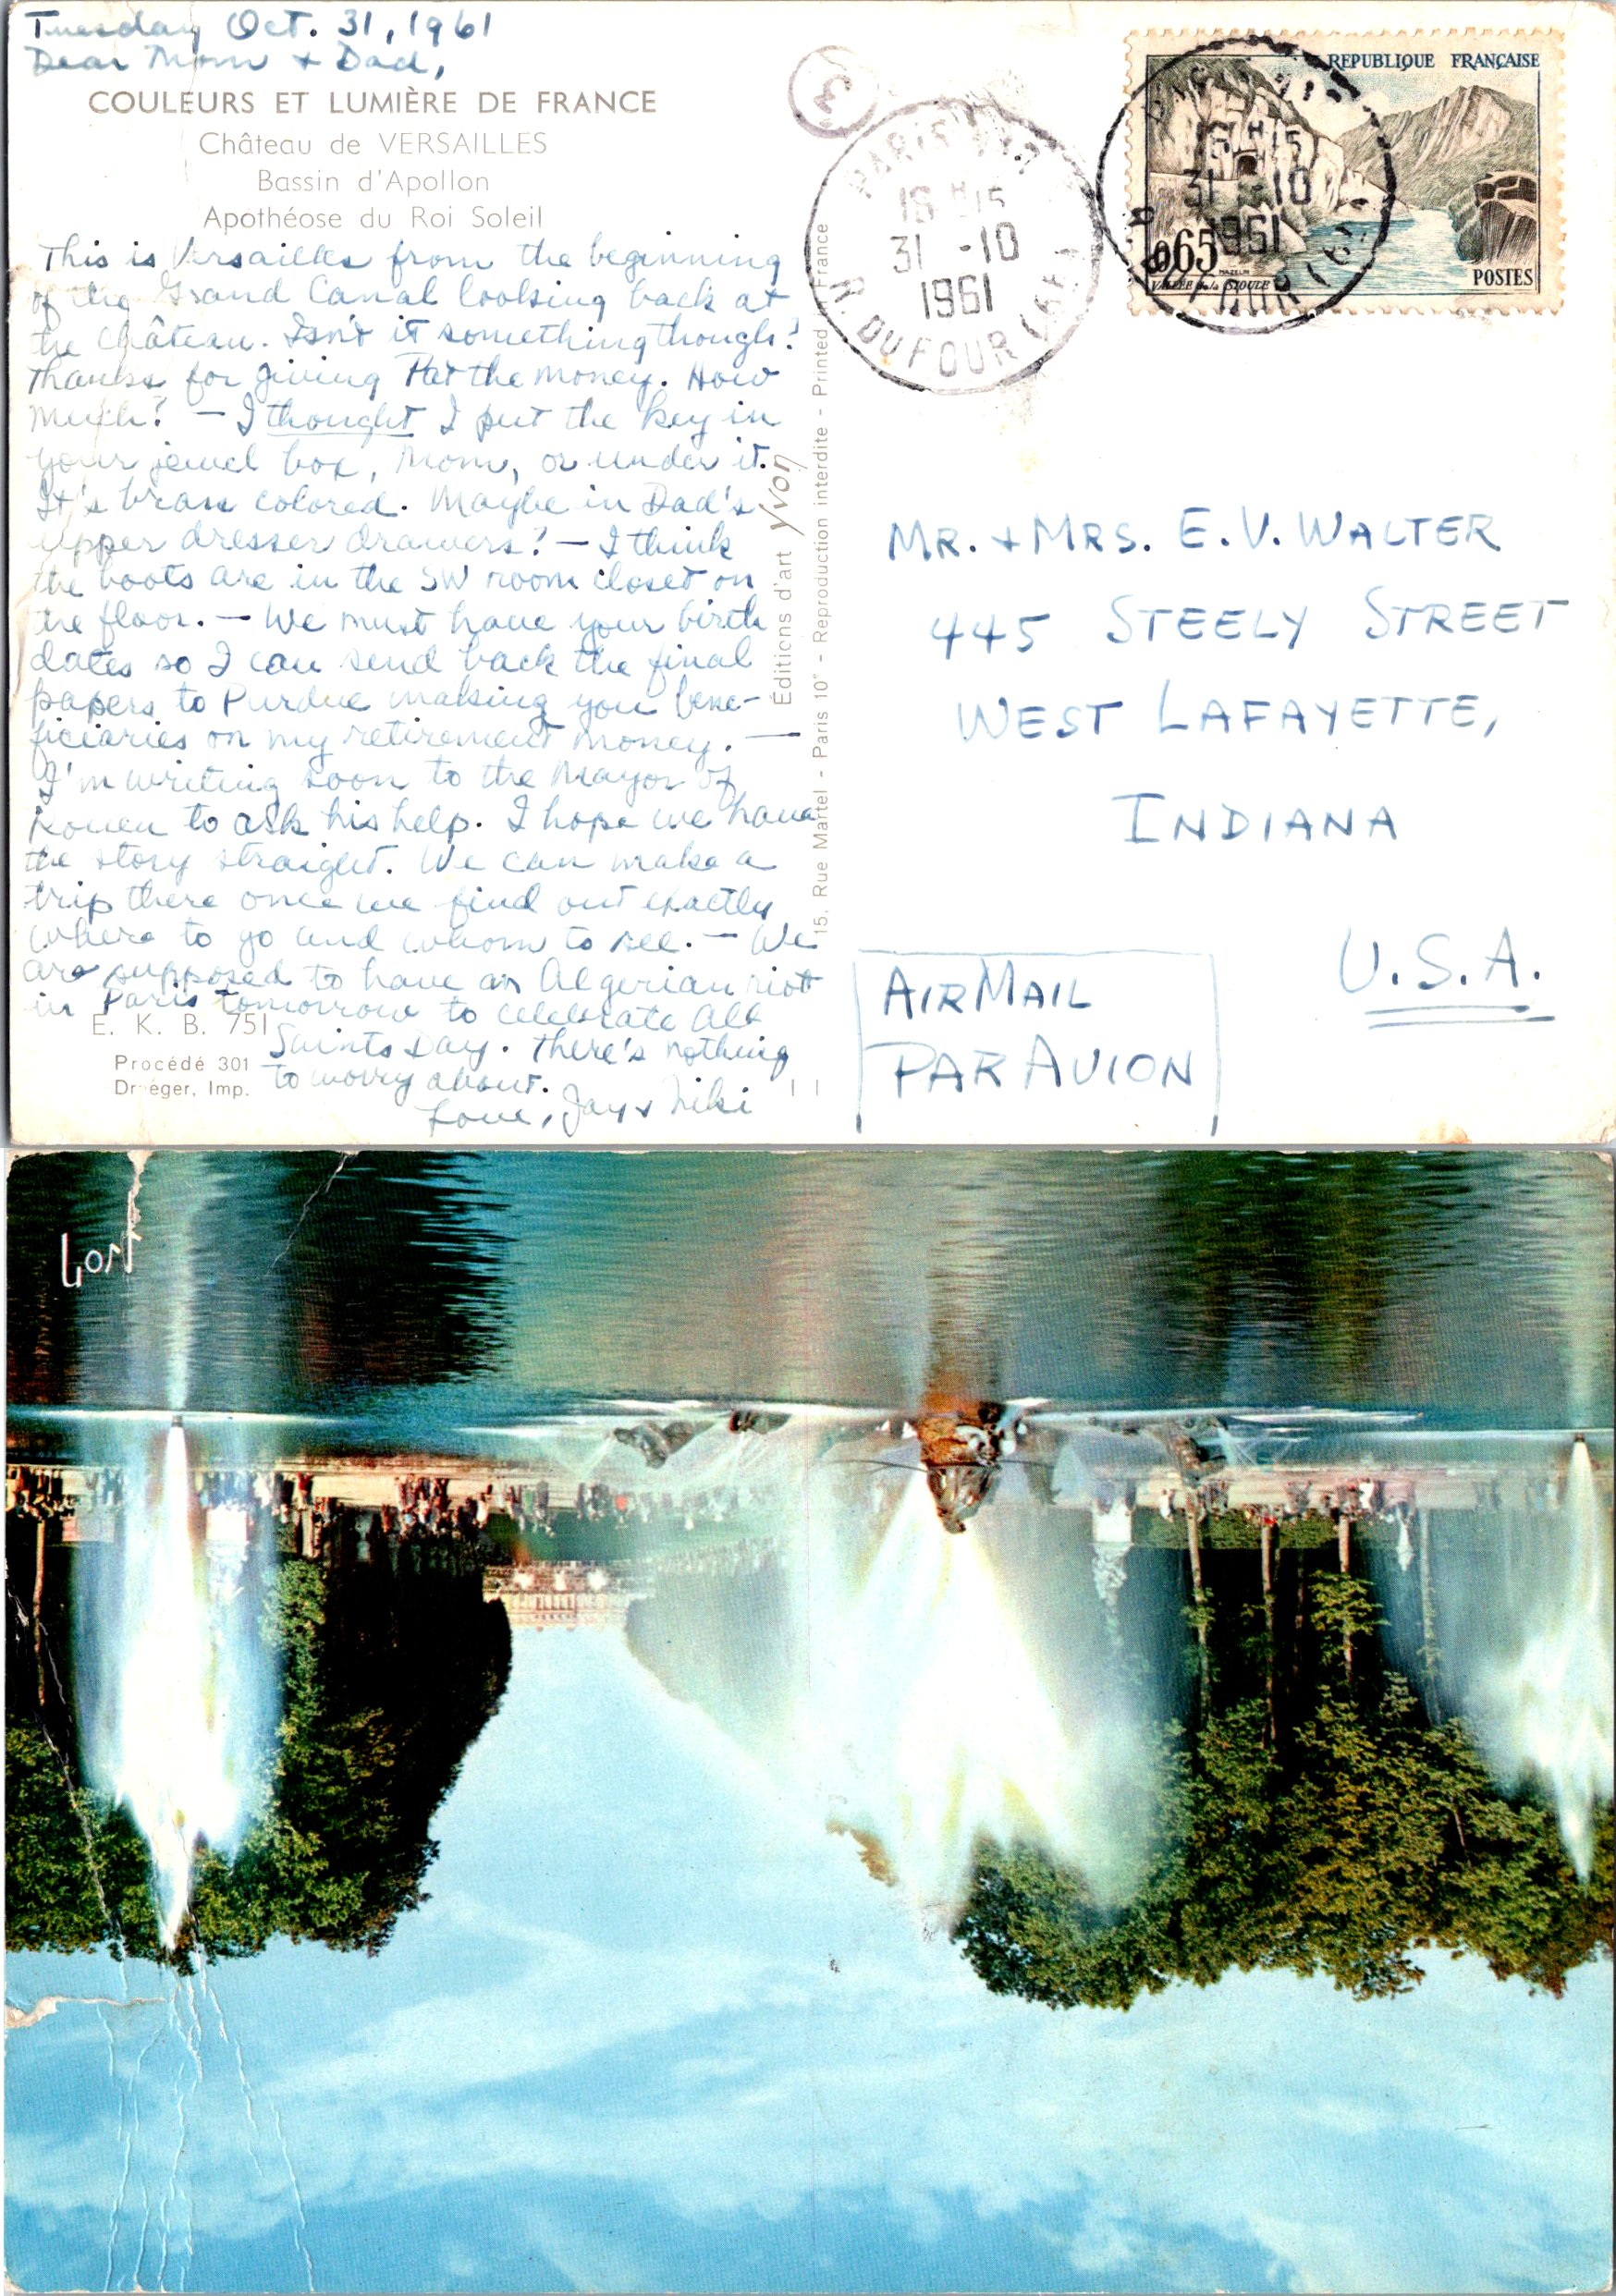 Tuesday Oct. 31, 1961
Dear Mom + Dad,
COULEURS ET LUMIÈRE DE FRANCE
Château de VERSAILLES
Bassin d'Apollon
Apothéose du Roi Soleil
This is Versailles from the beginning
of the Grand Canal looking back at
the Château. Isn't it something though!
Thanks for giving Pat the money. How
much? — I thought I put the key in
your jewel box, Mom, or under it.
It's brass colored. Maybe in Dad's
upper dresser drawers? — I think
the boots are in the SW room closet on
the floor. — We must have your birth
dates so I can send back the final
papers to Purdue making you bene-
ficiaries on my retirement money. —
I'm writing soon to the Mayor of
Rouen to ask his help. I hope we have
the story straight. We can make a
trip there once we find out exactly
where to go and whom to see. — We
are supposed to have an Algerian riot
in Paris tomorrow to celebrate All
Saints Day. There's nothing
to worry about.
Love, Jay + Niki
E. K. B. 751
Procédé 301
Draeger, Imp.
Éditions d'art Yvon
15, Rue Martel - Paris 10e - Reproduction interdite - Printed in France
3
PARIS
16 H 15
31 - 10
1961
R. DU FOUR (6E)
REPUBLIQUE FRANÇAISE
16 H 15
31 - 10
1961
R. DU FOUR (6E)
0,65
MAZELIN
VALLÉE de la SIOULE
POSTES
MR. + MRS. E. V. WALTER
445 STEELY STREET
WEST LAFAYETTE,
INDIANA
U.S.A.
AIR MAIL
PAR AVION
yvon